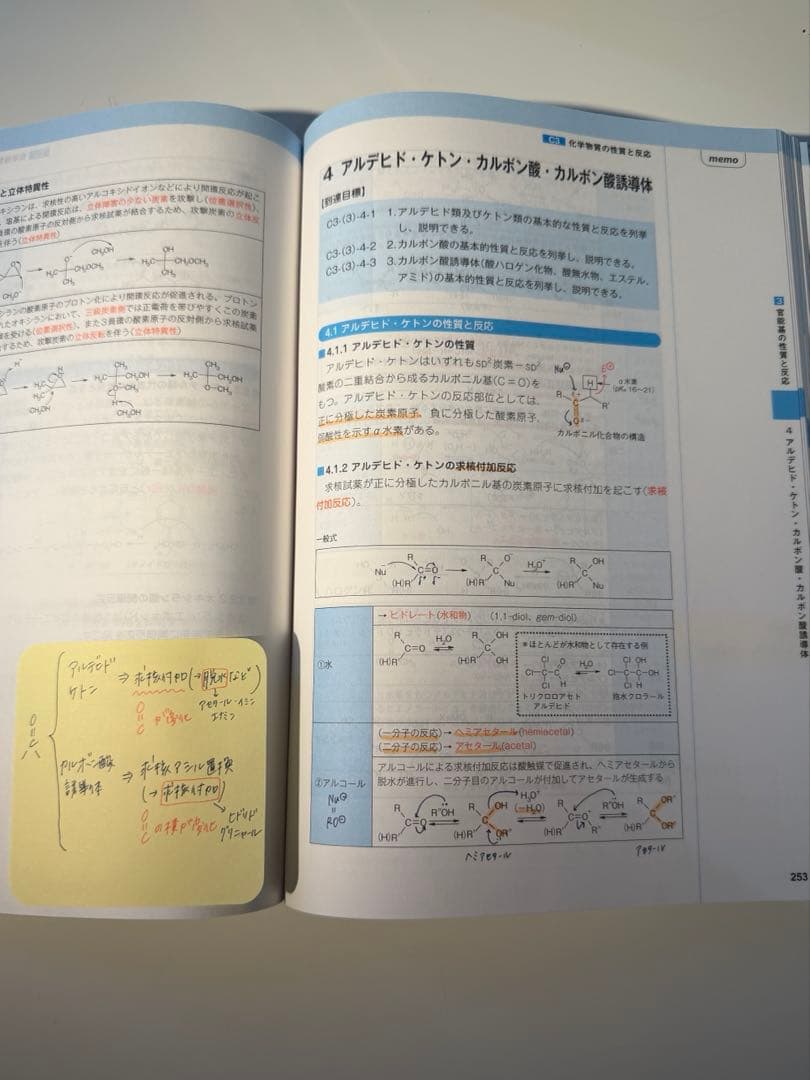 と立体特異性
キシランは、求核性の高いアルコキシドイオンなどにより開環反応が起こ
塩基による開環反応は、立体障害の少ない炭素を攻撃し(位置選択性)、
員環の酸素原子の反対側から求核試薬が結合するため、攻撃炭素の立体反
を伴う(立体特異性)
CH₃O⁻
シランの酸素原子のプロトン化により開環反応が促進される。プロトン
れたオキシランにおいて、三級炭素側では正電荷を帯びやすくこの炭素
を受ける(位置選択性)、また3員環の酸素原子の反対側から求核試薬
するため、攻撃炭素の立体反転を伴う(立体特異性)
アルデヒド
ケトン ⇒ 求核付加(→脱水など)
アセタール・イミン
エナミン
O
=
C が変化
カルボン酸
誘導体 ⇒ 求核アシル置換
(→求核付加)
ヒドリド
グリニャール
O
=
C の横が変化
C3 化学物質の性質と反応
memo
4 アルデヒド・ケトン・カルボン酸・カルボン酸誘導体
【到達目標】
C3-(3)-4-1 1.アルデヒド類及びケトン類の基本的な性質と反応を列挙
し、説明できる。
C3-(3)-4-2 2.カルボン酸の基本的性質と反応を列挙し、説明できる。
C3-(3)-4-3 3.カルボン酸誘導体(酸ハロゲン化物、酸無水物、エステル、
アミド)の基本的性質と反応を列挙し、説明できる。
4.1 アルデヒド・ケトンの性質と反応
■4.1.1 アルデヒド・ケトンの性質
アルデヒド・ケトンはいずれもsp²炭素−sp²
酸素の二重結合から成るカルボニル基(C=O)を
もつ。アルデヒド・ケトンの反応部位としては、
正に分極した炭素原子、負に分極した酸素原子、
弱酸性を示すα水素がある。
Nu⊖ E⊕
H α水素
(pKa 16〜21)
R C R'
O
カルボニル化合物の構造
■4.1.2 アルデヒド・ケトンの求核付加反応
求核試薬が正に分極したカルボニル基の炭素原子に求核付加を起こす(求核
付加反応)。
一般式
R R O⁻ R OH
Nu C=O → C H₃O⁺ → C
(H)R' (H)R' Nu (H)R' Nu
①水
→ ヒドレート(水和物) (1,1-diol、gem-diol)
R H₂O R OH
C=O ⇌ C
(H)R' (H)R' OH
*ほとんどが水和物として存在する例
Cl O H₂O Cl OH
Cl−C−C ⇌ Cl−C−C−OH
Cl H Cl H
トリクロロアセト 抱水クロラール
アルデヒド
②アルコール
Nu⊖
=
RO⊖
(一分子の反応)→ヘミアセタール(hemiacetal)
(二分子の反応)→アセタール(acetal)
アルコールによる求核付加反応は酸触媒で促進され、ヘミアセタールから
脱水が進行し、二分子目のアルコールが付加してアセタールが生成する
R R"OH R OH H₃O⁺ R R"OH R OR"
C=O ⇌ C (−H₂O) ⇌ C=O⁺ ⇌ C
(H)R' (H)R' OR" (H)R' R" (H)R' OR"
ヘミアセタール アセタール
3 官能基の性質と反応
4 アルデヒド・ケトン・カルボン酸・カルボン酸誘導体
253